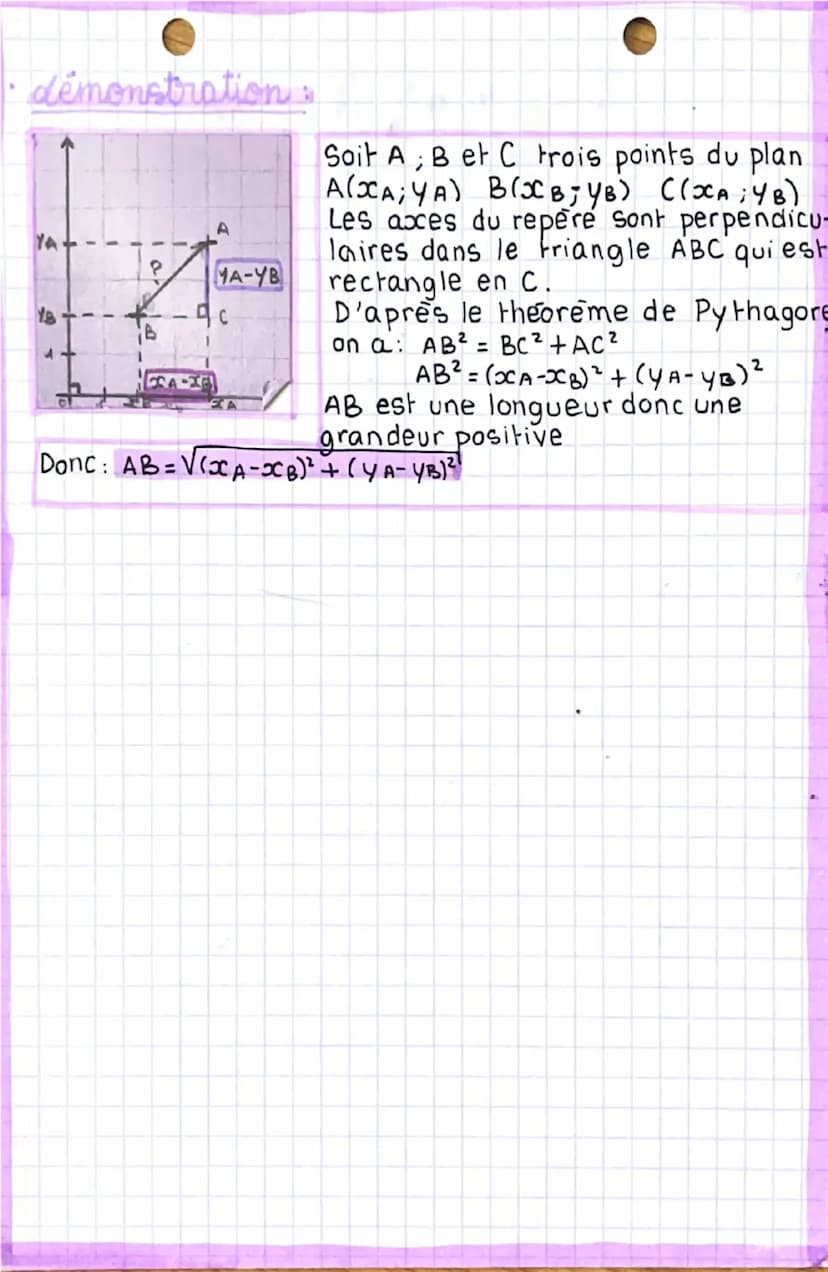 démonstration :
Soit A ; B et C trois points du plan
A(xA ; yA) B(xB ; yB) C(xA ; yB)
Les axes du repère sont perpendicu-
laires dans le triangle ABC qui est
rectangle en C.
D'après le théorème de Pythagore
on a : AB² = BC² + AC²
AB² = (xA-xB)² + (yA-yB)²
AB est une longueur donc une
grandeur positive
Donc : AB = √(xA-xB)² + (yA-yB)²
A
YA
?
YA-YB
YB
B
C
1
xA-xB
0
xB
xA